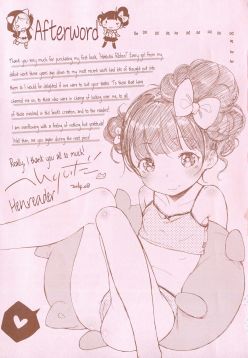 Afterword
Thank you very much for purchasing my first book, "
debut work three years ago down to my most recent work had lots of thought put into
them so I would be delighted if one were to suit your tastes. To those that have
cheered me on, to those who were in charge of looking over me, to all
of those involved in the book's creation, and to the readers!
I am overflowing with a feeling of nothing but gratitude!
Well then, let us meet again in the next part!
Really, I thank you all so much
Henreader